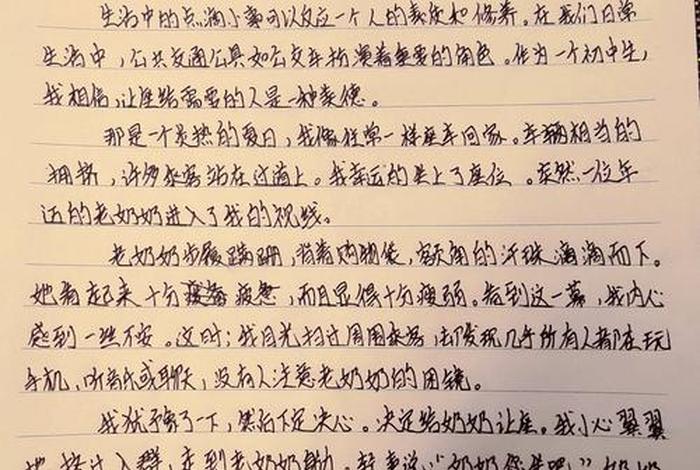 生活中的点滴小事可以反应一个人的素质和修养。在我们日常
生活中，公共交通工具如公交车扮演着重要的角色。作为一个初中生，
我相信让座给需要的人是一种美德。
那是一个炎热的夏日，我像往常一样座车回家。车辆相当的
拥挤，许多乘客站在过道上。我幸运的坐上了座位。突然一位年
迈的老奶奶进入了我的视线。
老奶奶步履蹒跚，背着购物袋，额角的汗珠滴滴而下。
她看起来十分疲惫，而且显得十分瘦弱。看到这一幕，我内心
感到一丝不安。这时；我目光扫过周围乘客，却发现几乎所有人都在玩
手机，听音乐或聊天，没有人注意老奶奶的困境。
我犹予了一下，然后下定决心。决定给奶奶让座。我小心翼翼
地挤过人群，走到老奶奶身边，轻声说："奶奶您坐吧"